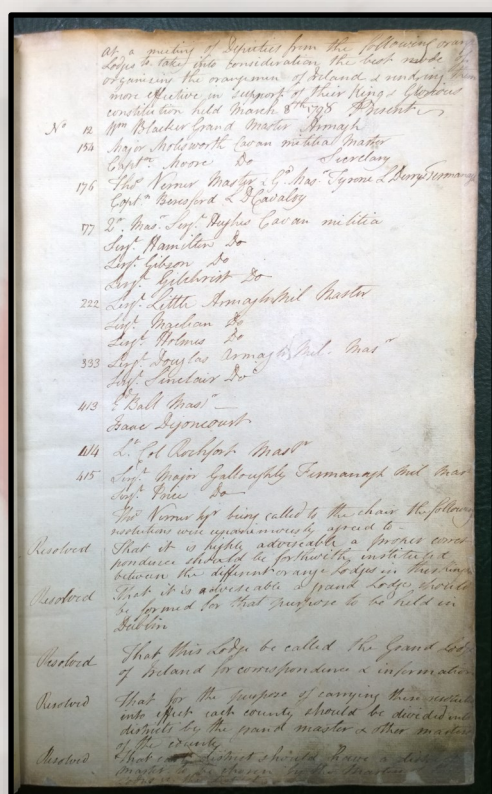 At a meeting of Deputies from the following orange
Lodges to take into consideration the best mode of
organizing the orangemen of Ireland & rendering them
more effective in support of their King & Glorious
constitution held March 8th 1798 Present
No 12 Wm Blacker Grand Master Armagh
154 Major Molesworth Cavan militia Master
Captn Moore Do Secretary
176 Thos Verner Master & Gd Mas. Tyrone L Derry & Fermanagh
Captn Beresford L D Cavalry
77 Dr Masr Serjt Hughes Cavan militia
Serjt Hamilton Do
Serjt Gibson Do
Serjt Gilchrist Do
222 Serjt Little Armagh Mil Master
Serjt Maclean Do
Serjt Holmes Do
333 Serjt Douglas Armagh Mil. Masr
Serjt Sinclair Do
413 Ed Ball Masr
Isaac Dejoncourt
414 Lt Col Rochfort Mastr
415 Serjt Major Galloughly Fermanagh Mil Mas
Serjt Price Do
Thos Verner Esqr being called to the chair the following
resolutions were unanimously agreed to
Resolved That it is highly adviseable a proper corres
pondence should be forthwith instituted
between the different orange Lodges in this
Resolved That it is adviseable a grand Lodge should
be formed for that purpose to be held in
Dublin
Resolved That this Lodge be called the Grand Lodge
of Ireland for correspondence & information
Resolved That for the purpose of carrying these resolutions
into effect each county should be divided into
districts by the grand master & other masters
of the county
Resolved That each district should have a district
master to be chosen by the Masters